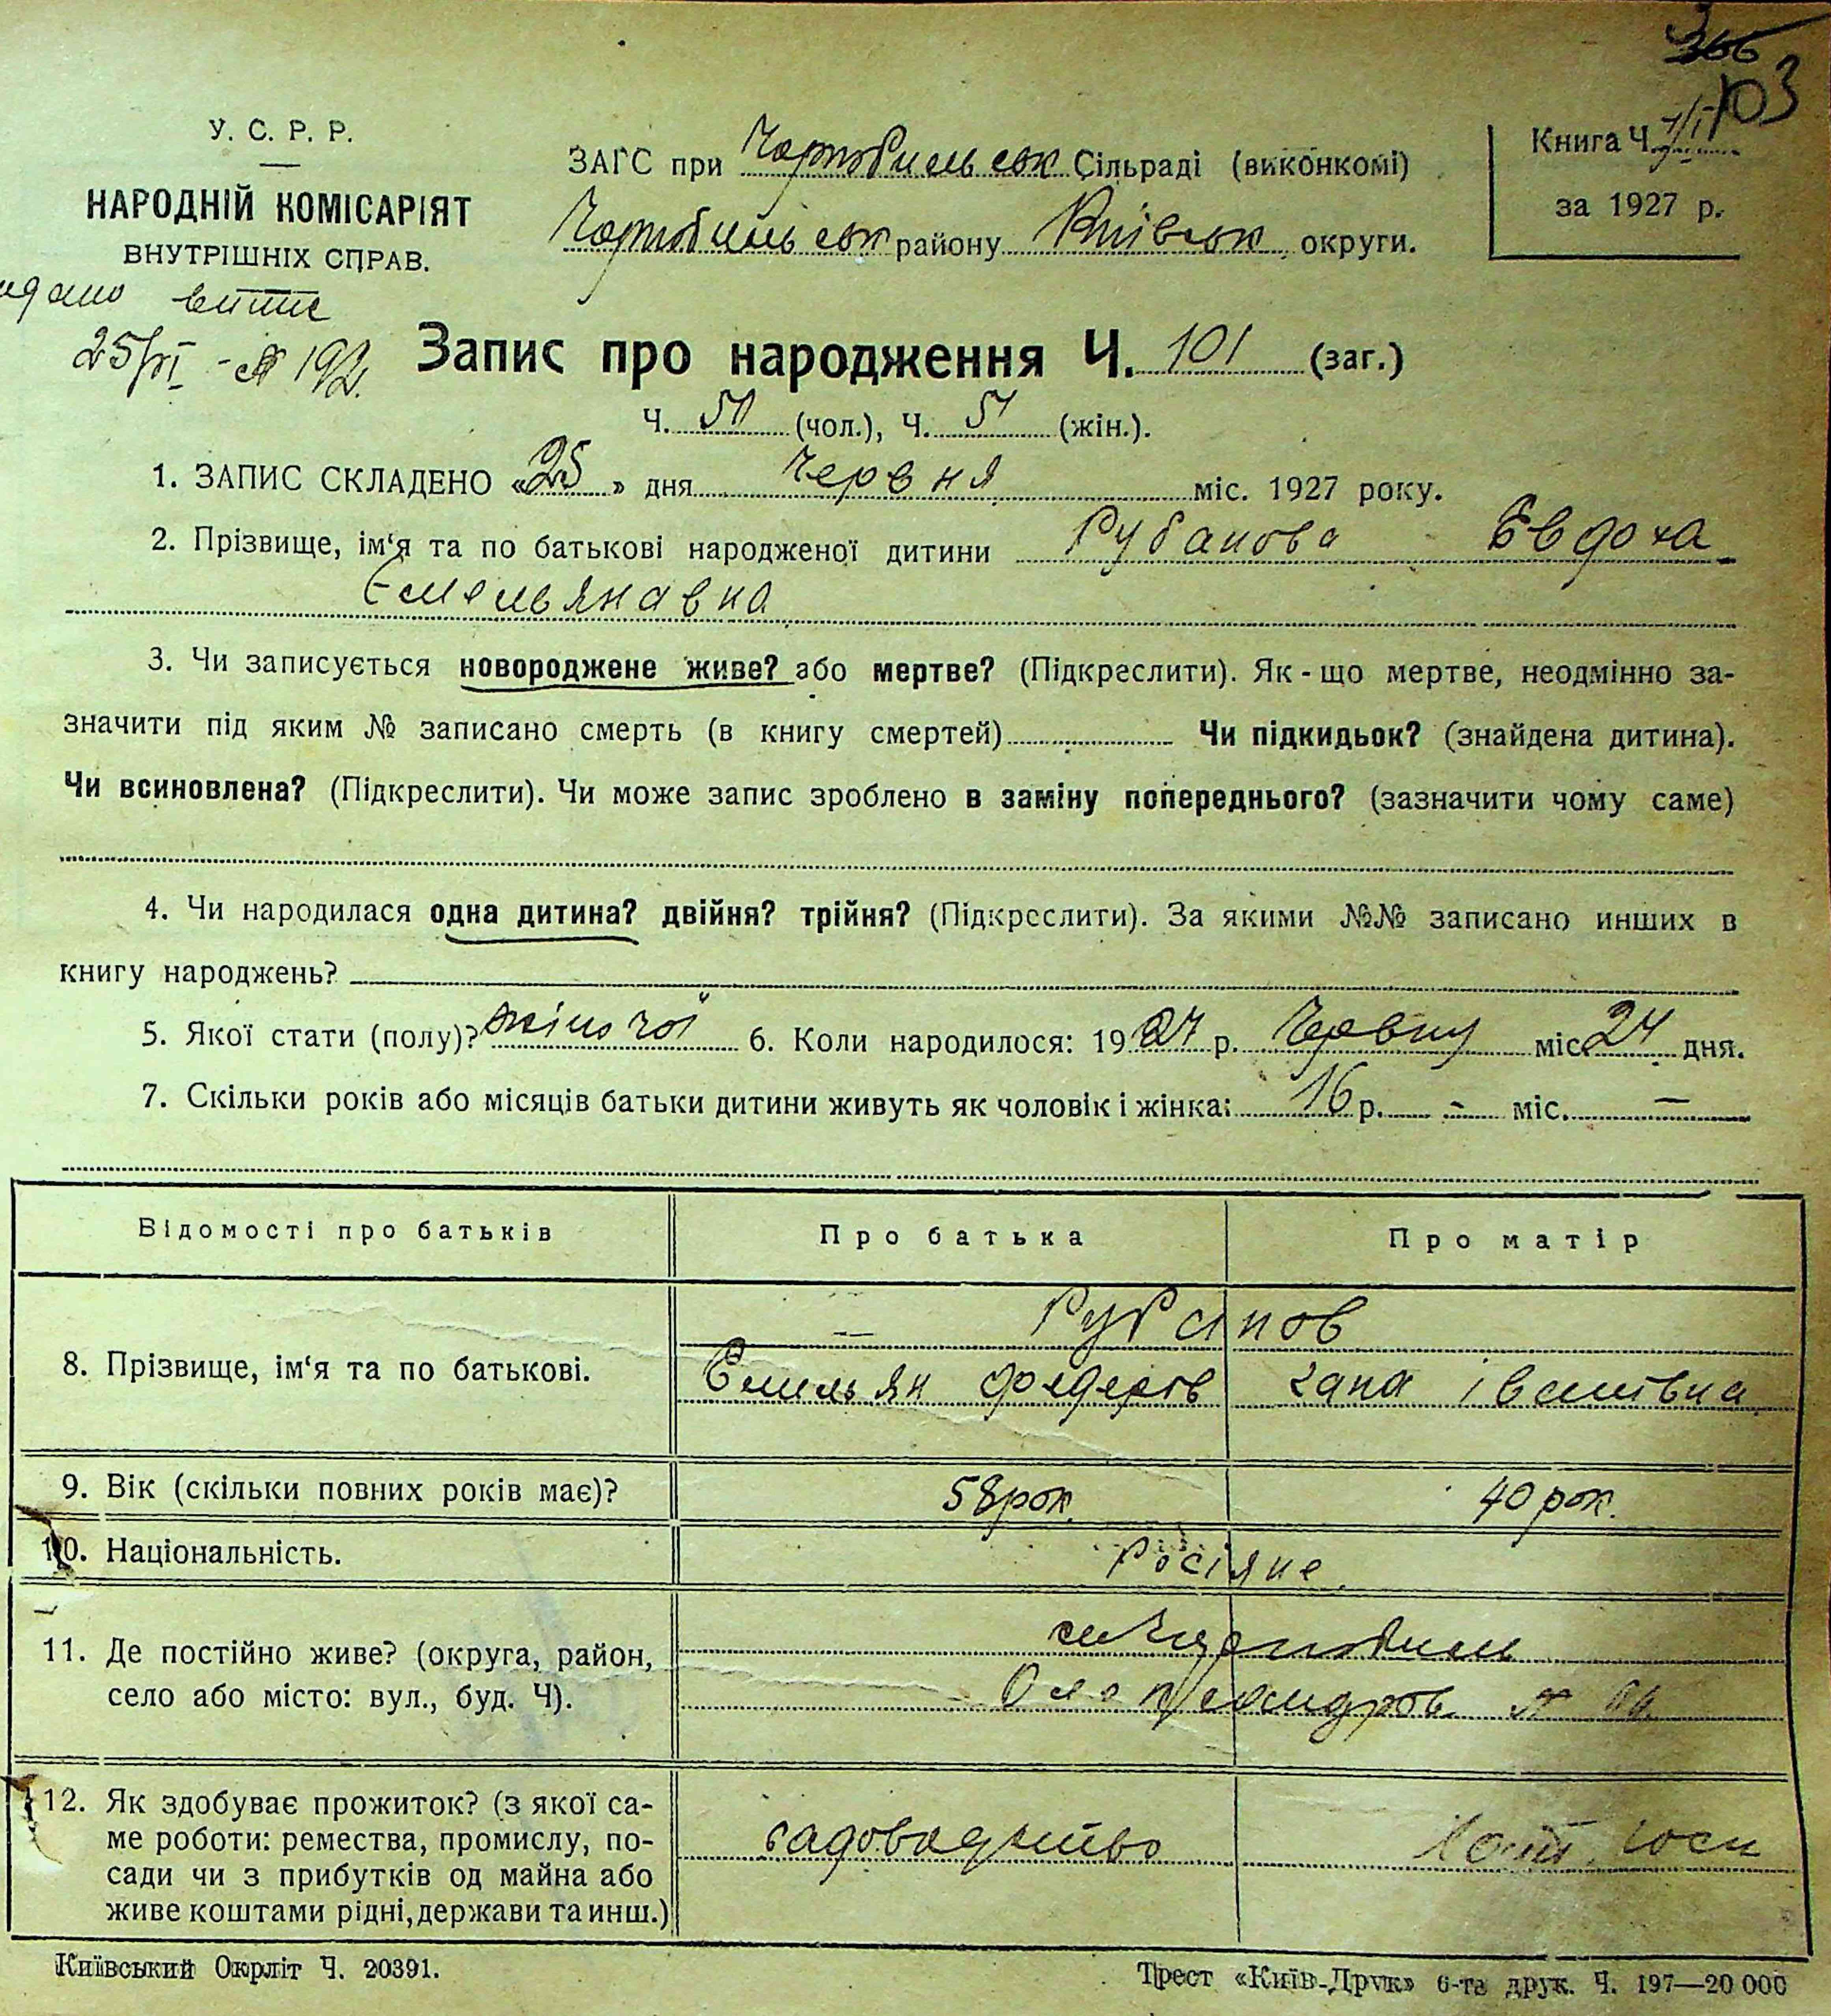 366
103
У. С. Р. Р.
НАРОДНІЙ КОМІСАРІЯТ
ВНУТРІШНІХ СПРАВ.
ЗАГС при Чорнобильськ Сільраді (виконкомі)
Чорнобильськ району Київськ округи.
Книга Ч.
за 1927 р.
витяг
Запис про народження Ч. 101 (заг.)
Ч. 50 (чол.), Ч. 51 (жін.).
1. ЗАПИС СКЛАДЕНО «25» дня Червня міс. 1927 року.
2. Прізвище, ім‘я та по батькові народженої дитини Рубанова Євдоха
Ємельянавна
3. Чи записується новороджене живе? або мертве? (Підкреслити). Як-що мертве, неодмінно за-
значити під яким № записано смерть (в книгу смертей) Чи підкидьок? (знайдена дитина).
Чи всиновлена? (Підкреслити). Чи може запис зроблено в заміну попереднього? (зазначити чому саме)
4. Чи народилася одна дитина? двійня? трійня? (Підкреслити). За якими №№ записано инших в
книгу народжень?
5. Якої стати (полу)? жіночої 6. Коли народилося: 1927 р. Червня міс. 24 дня.
7. Скільки років або місяців батьки дитини живуть як чоловік і жінка: 16 р. - міс. —
Відомості про батьків Про батька Про матір
— Рубанов
8. Прізвище, ім‘я та по батькові. Емельян Федеров Гана Іванівна
9. Вік (скільки повних років має)? 58 рок. 40 рок.
10. Національність. Росіяне.
11. Де постійно живе? (округа, район,
село або місто: вул., буд. Ч).
м. Чорнобиль
12. Як здобуває прожиток? (з якої са-
ме роботи: ремества, промислу, по-
сади чи з прибутків од майна або
живе коштами рідні, держави та инш.)
садоводство
Київський Окрліт Ч. 20391.
Трест «Київ-Друк» 6-та друк. Ч. 197—20 000